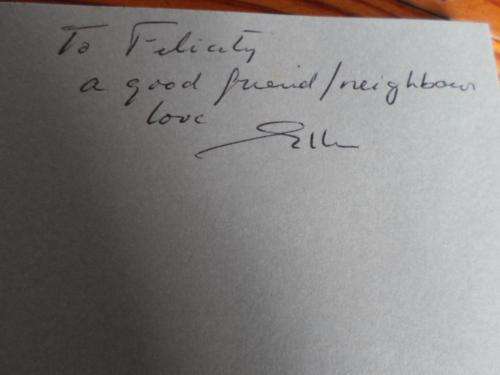 To Felicity
a good friend/neighbour
love